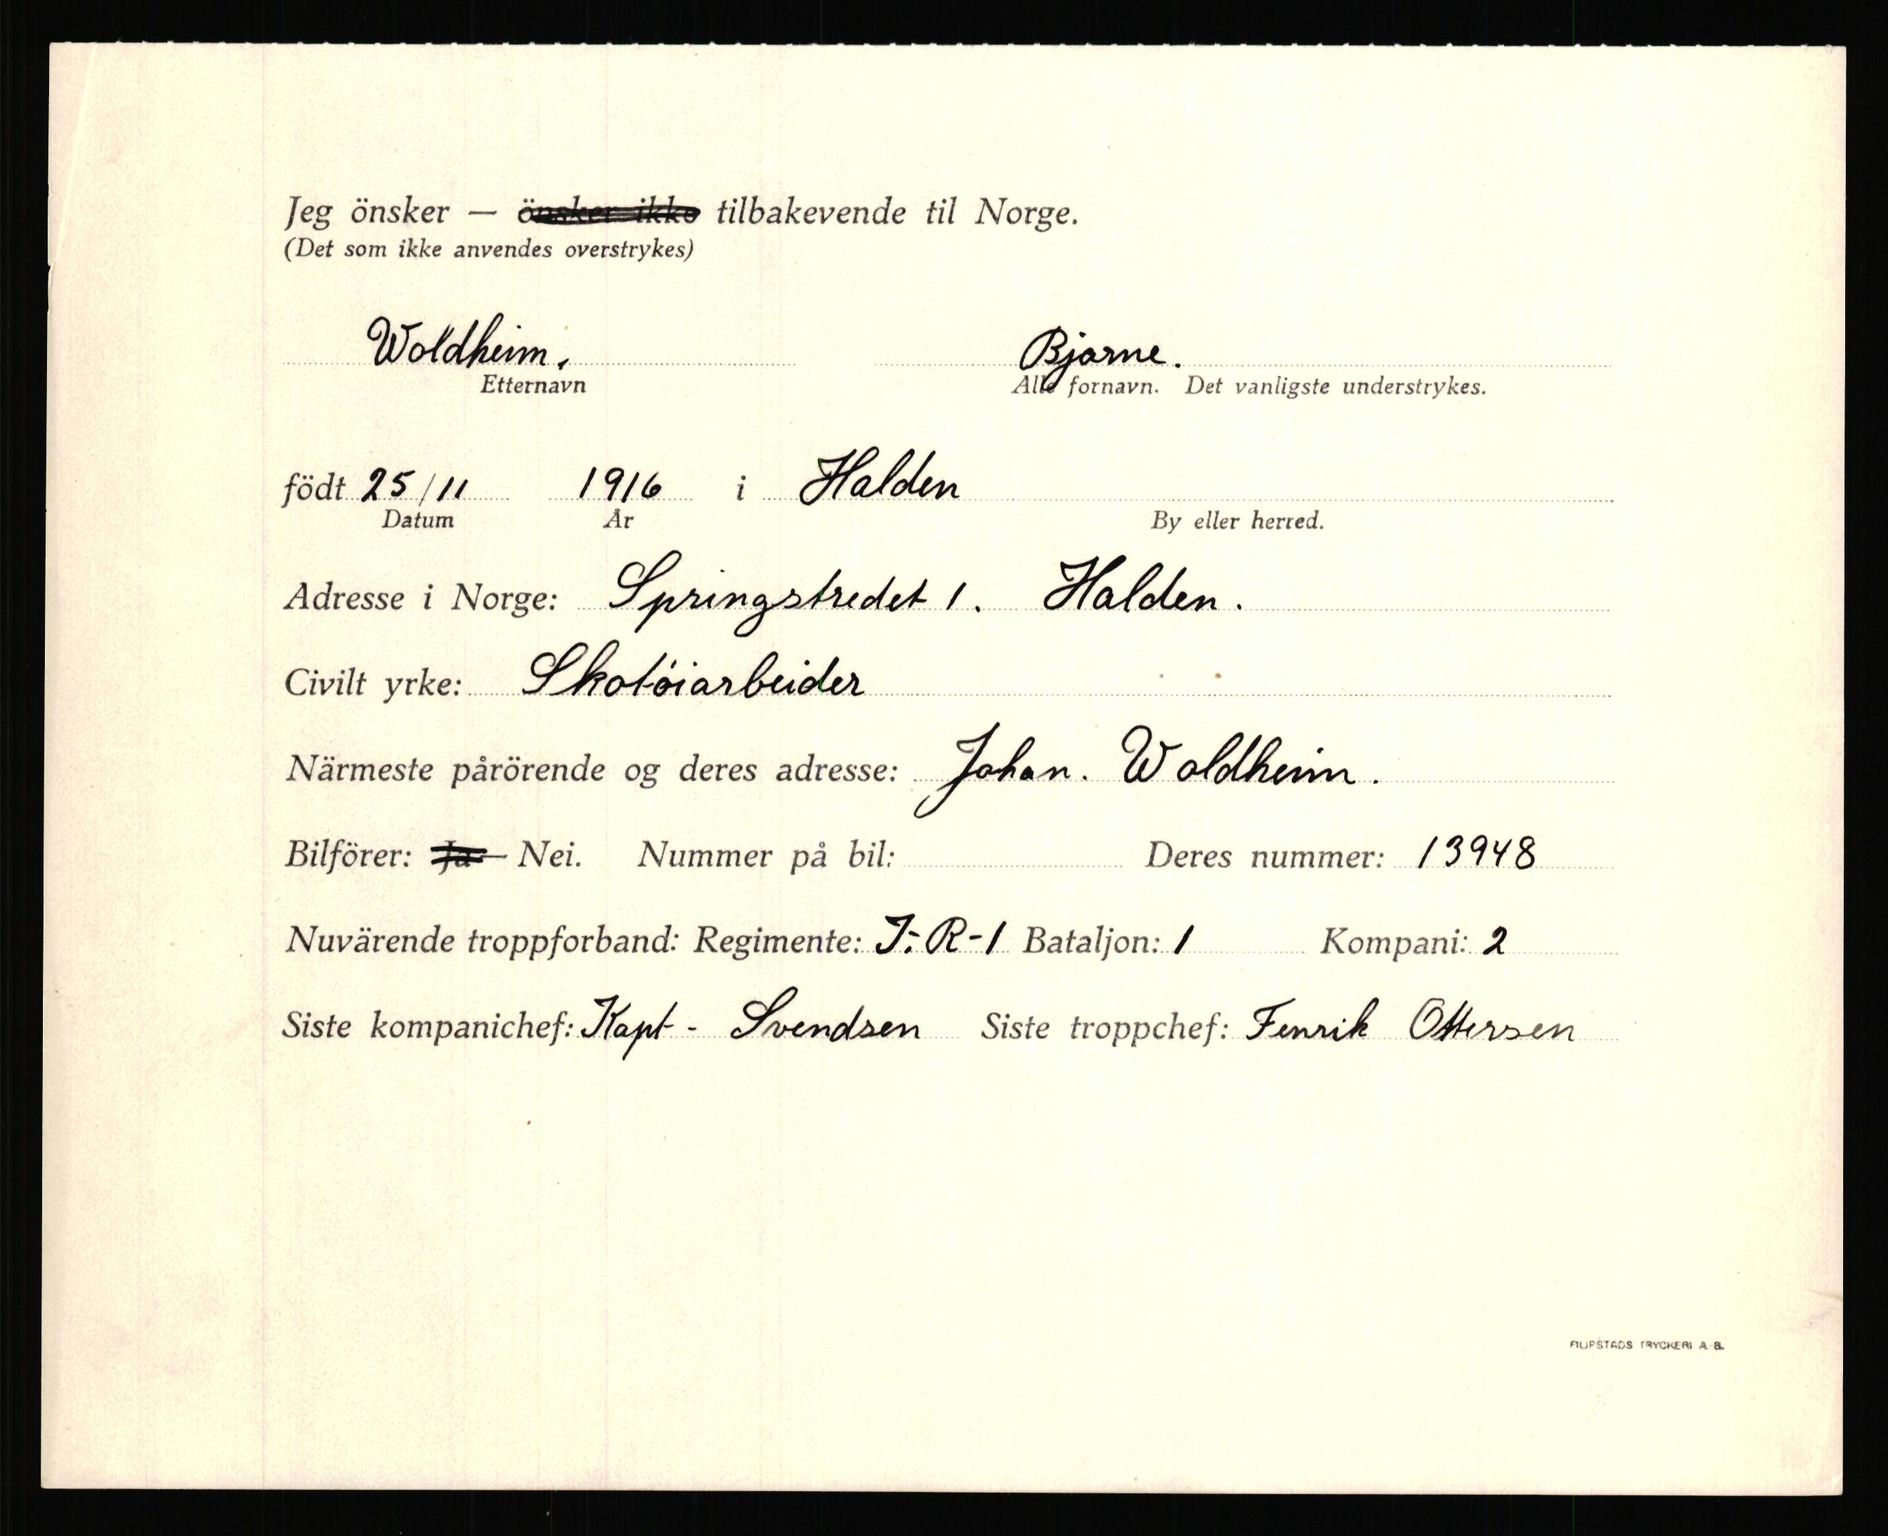 Jeg önsker — önsker ikke tilbakevende til Norge.
(Det som ikke anvendes overstrykes)
Woldheim. Bjarne.
Etternavn Alle fornavn. Det vanligste understrykes.
födt 25/11 1916 i Halden
Datum År By eller herred.
Adresse i Norge: Springstredet 1. Halden.
Civilt yrke: Skotöiarbeider
Närmeste pårörende og deres adresse: Johan. Woldheim.
Bilförer: Ja — Nei. Nummer på bil: Deres nummer: 13948
Nuvärende troppforband: Regimente: I:-R-1 Bataljon: 1 Kompani: 2
Siste kompanichef: Kapt- - Svendsen Siste troppchef: Fenrik Ottersen
FILIPSTADS TRYCKERI A.B.